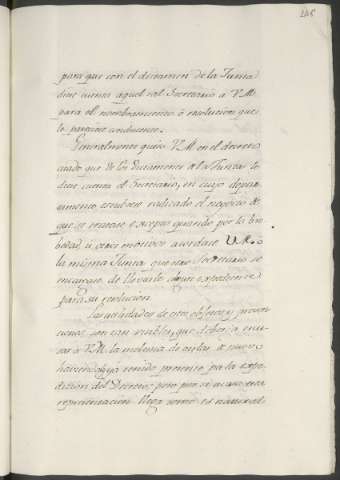 para que con el dictamen de la Junta
diese cuenta aquel tal Secretario a V.M.
para el nombramiento o resolucion que
le pareciese conducente.
Generalmente quiso V.M. en el decreto
citado que de los Dictamenes de la Junta se
diese cuenta el Secretario, en cuyo depar-
tamento estubiese radicado el negocio de
que se tratase excepto quando por la bre-
bedad, u otros motivos acordase V.M. o
la misma Junta que otro Secretario se
encargue de llevarle algun expediente
para su resolucion.
Las utilidades de este objeto y preven-
ciones son tan visibles, que
sar a V.M. la molestia de oirlas de nuevo,
haviendo las ya tenido presente para la expe-
dicion del Decreto; pero por si acaso esta
representacion llega como es natural